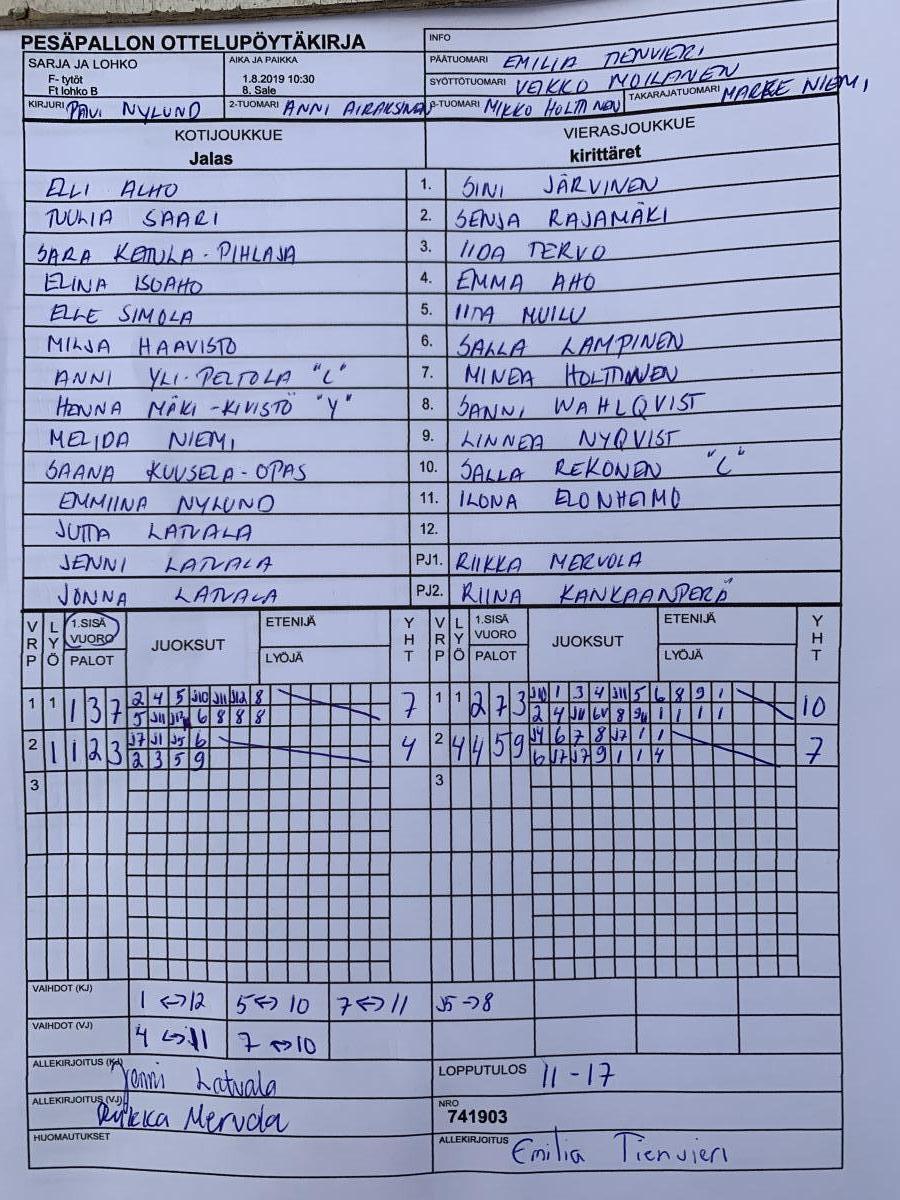 PESÄPALLON OTTELUPÖYTÄKIRJA
INFO
SARJA JA LOHKO
F- tytöt
Ft lohko B
AIKA JA PAIKKA
1.8.2019 10:30
8. Sale
PÄÄTUOMARI EMILIA TIENVIERI
SYÖTTÖTUOMARI VEKKO MOILANEN
KIRJURI PÄIVI NYLUND
2-TUOMARI ANNI AIRAKSINEN
3-TUOMARI MIKKO HOLTTINEN
TAKARAJATUOMARI MARKE NIEMI
KOTIJOUKKUE
Jalas
VIERASJOUKKUE
kirittäret
ELLI ALHO 1. SINI JÄRVINEN
TUULIA SAARI 2. SENJA RAJAMÄKI
SARA KETULA-PIHLAJA 3. IIDA TERVO
ELINA ISOAHO 4. EMMA AHO
ELLE SIMOLA 5. IITA MUILU
MILJA HAAVISTO 6. SALLA LAMPINEN
ANNI YLI-PELTOLA "L" 7. MINEA HOLTTINEN
HENNA MÄKI-KIVISTÖ "Y" 8. SANNI WAHLQVIST
MELIDA NIEMI 9. LINNEA NYQVIST
SAANA KUUSELA-OPAS 10. SALLA REKONEN "L"
EMMIINA NYLUND 11. ILONA ELONHEIMO
JUTTA LATVALA 12.
JENNI LATVALA PJ1. RIIKKA MERVOLA
JONNA LATVALA PJ2. RIINA KANKAANPERÄ
VRP LYÖ 1.SISÄ VUORO PALOT JUOKSUT ETENIJÄ LYÖJÄ YHT VRP LYÖ 1.SISÄ VUORO PALOT JUOKSUT ETENIJÄ LYÖJÄ YHT
1 1 1 3 7 2 4 5 J10 J11 J12 8 7 1 1 2 7 3 J10 1 3 4 J11 5 6 8 9 1 10
5 J11 J12 6 8 8 8 2 4 J11 8 1 1 1 1
2 1 1 2 3 J7 J1 J5 6 4 2 4 4 5 9 J4 6 7 8 J7 1 1 7
2 3 5 9 6 J7 J7 9 1 1 4
3 3
VAIHDOT (KJ) 1 <-> 12 5 <-> 10 7 <-> 11 J5 -> 8
VAIHDOT (VJ) 4 <-> 11 7 <-> 10
ALLEKIRJOITUS (KJ) Jenni Latvala
LOPPUTULOS 11-17
ALLEKIRJOITUS (VJ) Riikka Mervola
NRO
741903
HUOMAUTUKSET
ALLEKIRJOITUS Emilia Tienvieri